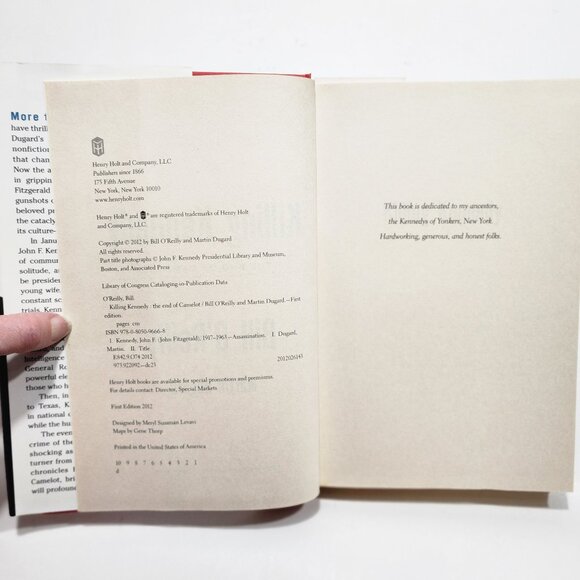 More t
have thrill
Dugard's
nonfiction
that chan
Now the a
in grippin
Fitzgerald
gunshots o
beloved pr
the catacly
its culture-
In Janu
John F. Ke
of commu
solitude, a
be preside
young wife
constant sc
trials. Kenn
and
Intelligence
General Ro
powerful ele
those who h
Then, in
to Texas, K
in national c
while the hu
The even
crime of the
shocking as
turner from
chronicles l
Camelot, bri
will profoun
Henry Holt and Company, LLC
Publishers since 1866
175 Fifth Avenue
New York, New York 10010
www.henryholt.com
Henry Holt® and ® are registered trademarks of Henry Holt
and Company, LLC.
Copyright © 2012 by Bill O'Reilly and Martin Dugard
All rights reserved.
Part title photographs © John F. Kennedy Presidential Library and Museum,
Boston, and Associated Press
Library of Congress Cataloging-in-Publication Data
O'Reilly, Bill.
Killing Kennedy : the end of Camelot / Bill O'Reilly and Martin Dugard.—First
edition.
pages cm
ISBN 978-0-8050-9666-8
1. Kennedy, John F. (John Fitzgerald), 1917–1963—Assassination. I. Dugard,
Martin. II. Title
E842.9.O74 2012
973.922092—dc23 2012026143
Henry Holt books are available for special promotions and premiums.
For details contact: Director, Special Markets
First Edition 2012
Designed by Meryl Sussman Levavi
Maps by Gene Thorp
Printed in the United States of America
10 9 8 7 6 5 4 3 2 1
d
This book is dedicated to my ancestors,
the Kennedys of Yonkers, New York
Hardworking, generous, and honest folks.